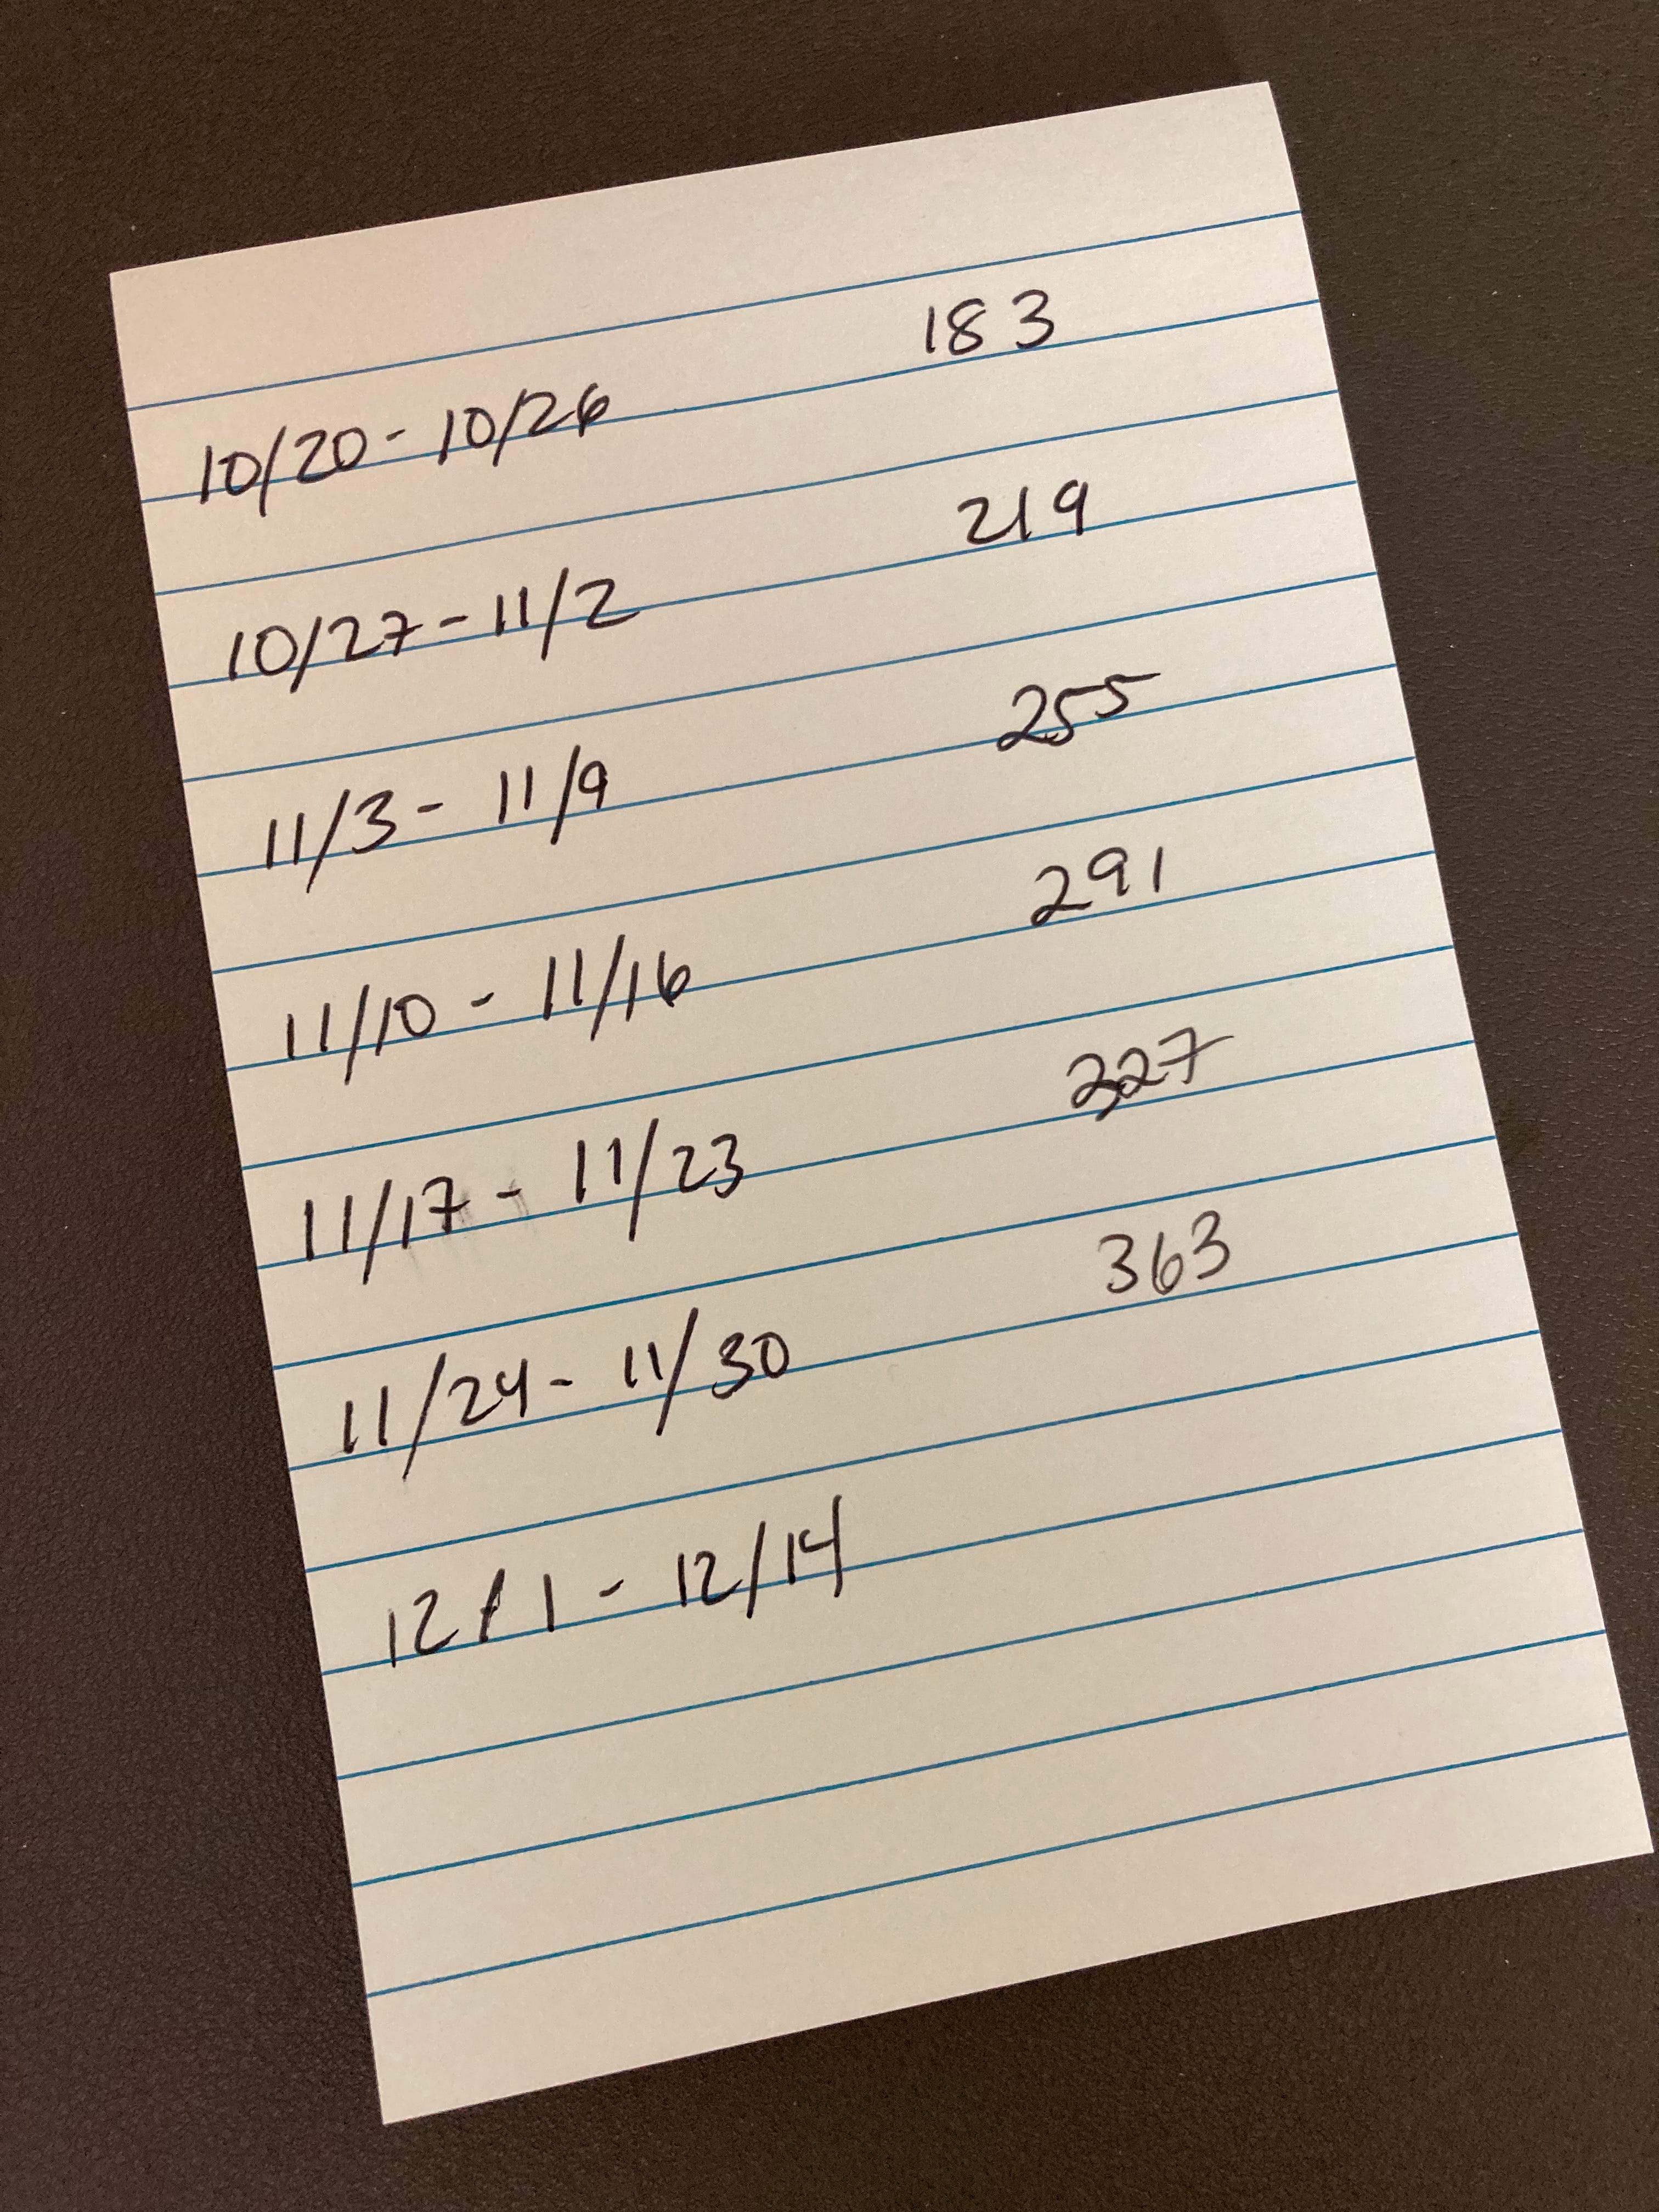 10/20 - 10/26 183
10/27 - 11/2 219
11/3 - 11/9 255
11/10 - 11/16 291
11/17 - 11/23 327
11/24 - 11/30 363
12/1 - 12/14